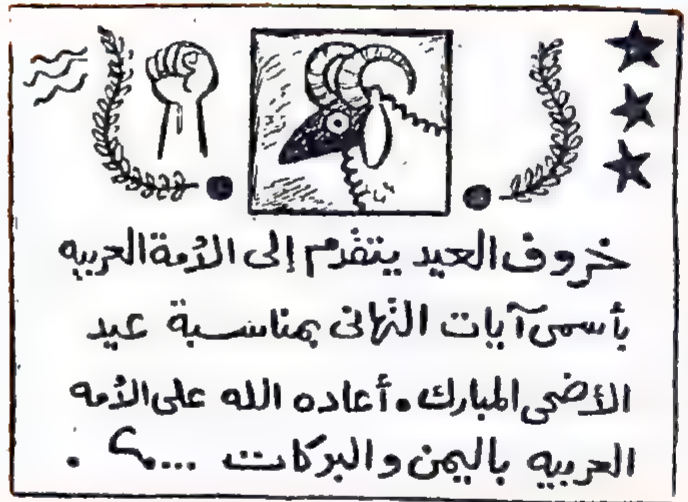 خروف العيد يتقدم إلى الأمة العربيه
بأسمى آيات التهانى بمناسبة عيد
الأضحى المبارك. أعاده الله على الأمه
العربيه باليمن والبركات ...؟ .